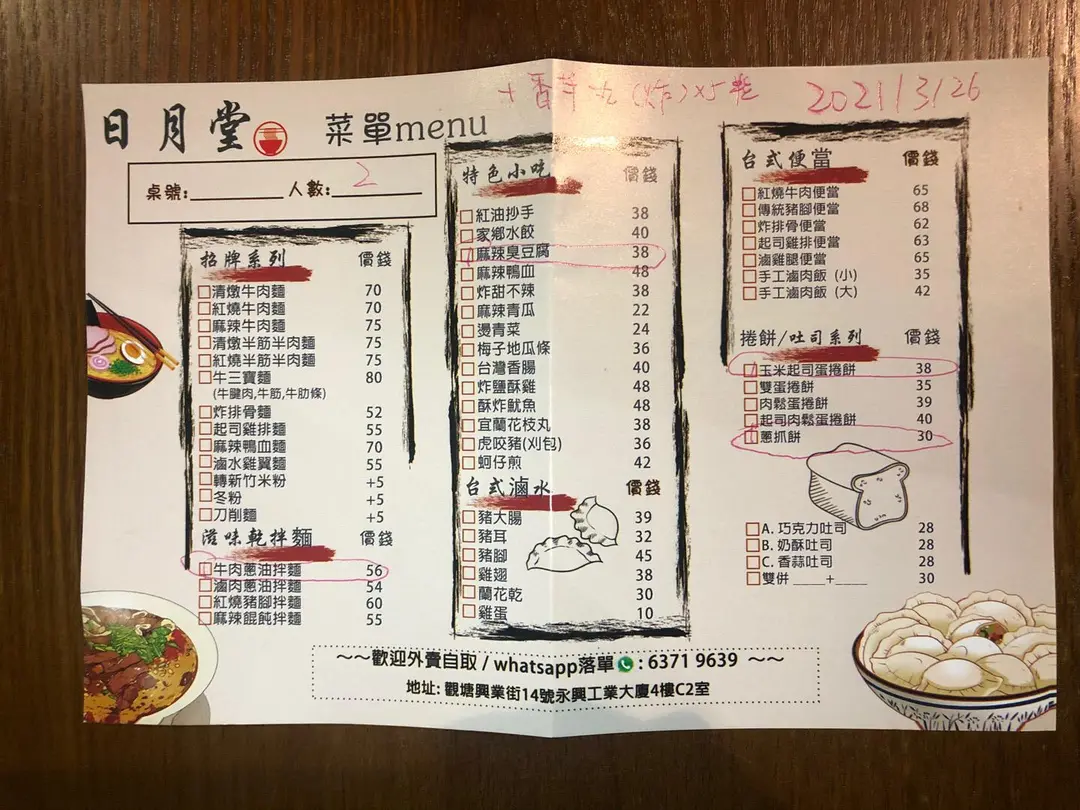 +香芋丸(炸)×5粒
2021/3/26
日月堂
菜單menu
桌號:________ 人數: 2
招牌系列 價錢
清燉牛肉麵 70
紅燒牛肉麵 70
麻辣牛肉麵 75
清燉半筋半肉麵 75
紅燒半筋半肉麵 75
牛三寶麵 80
(牛腱肉,牛筋,牛肋條)
炸排骨麵 52
起司雞排麵 55
麻辣鴨血麵 70
滷水雞翼麵 55
轉新竹米粉 +5
冬粉 +5
刀削麵 +5
滋味乾拌麵 價錢
牛肉蔥油拌麵 56
滷肉蔥油拌麵 54
紅燒豬腳拌麵 60
麻辣餛飩拌麵 55
特色小吃 價錢
紅油抄手 38
家鄉水餃 40
麻辣臭豆腐 38
麻辣鴨血 48
炸甜不辣 38
麻辣青瓜 22
燙青菜 24
梅子地瓜條 36
台灣香腸 40
炸鹽酥雞 48
酥炸魷魚 48
宜蘭花枝丸 38
虎咬豬(刈包) 36
蚵仔煎 42
台式滷水 價錢
豬大腸 39
豬耳 32
豬腳 45
雞翅 38
蘭花乾 30
雞蛋 10
台式便當 價錢
紅燒牛肉便當 65
傳統豬腳便當 68
炸排骨便當 62
起司雞排便當 63
滷雞腿便當 65
手工滷肉飯 (小) 35
手工滷肉飯 (大) 42
捲餅/吐司系列 價錢
玉米起司蛋捲餅 38
雙蛋捲餅 35
肉鬆蛋捲餅 39
起司肉鬆蛋捲餅 40
蔥抓餅 30
A. 巧克力吐司 28
B. 奶酥吐司 28
C. 香蒜吐司 28
雙併 ____+____ 30
~~歡迎外賣自取 / whatsapp落單 : 6371 9639 ~~
地址: 觀塘興業街14號永興工業大廈4樓C2室